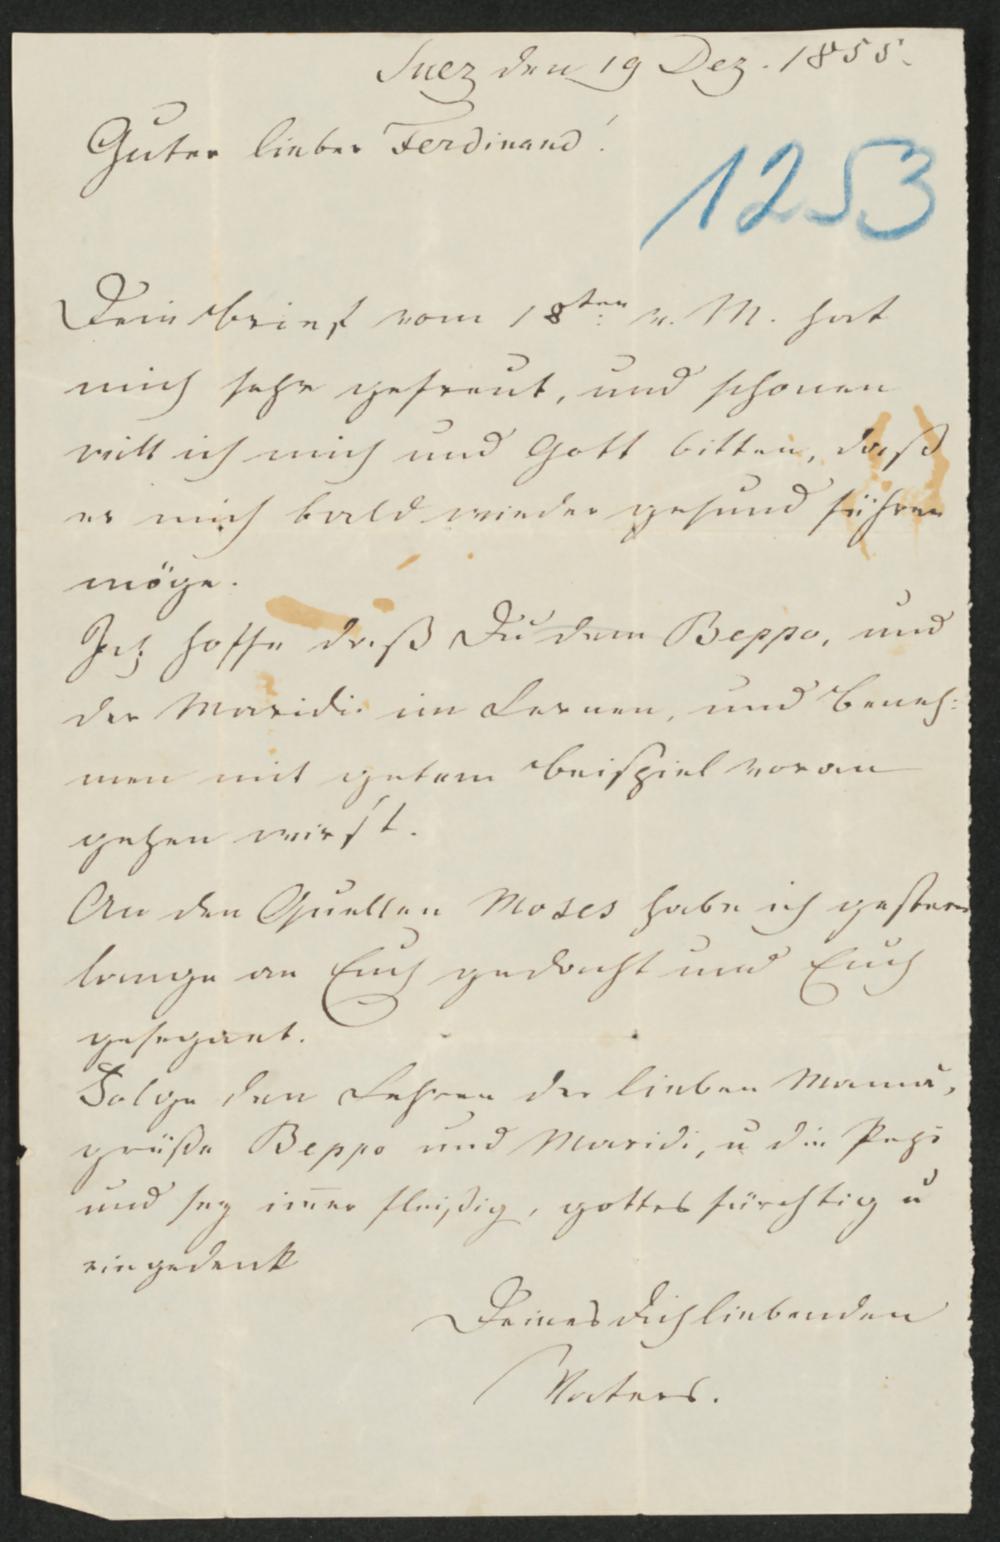 Suez den 19 Dez. 1855.
Guter lieber Ferdinand!
1253
Dein Brief vom 18ten v. M. hat
mich sehr gefreut, und schonen
will ich mich und Gott bitten, daß
er mich bald wieder gesund führen
möge.
Ich hoffe daß Du dem Beppo, und
der Maridi im Lernen, und Beneh:
men mit gutem Beispiel voran
gehen wirst.
An den Quellen Moses habe ich gestern
lange an Euch gedacht und Euch
gesegnet.
Folge den Lehren der lieben Mama,
grüße Beppo und Maridi, u die Pepi
und sey im̅er fleißig, gottesfürchtig u
eingedenk
Deines Dich liebenden
Vaters.